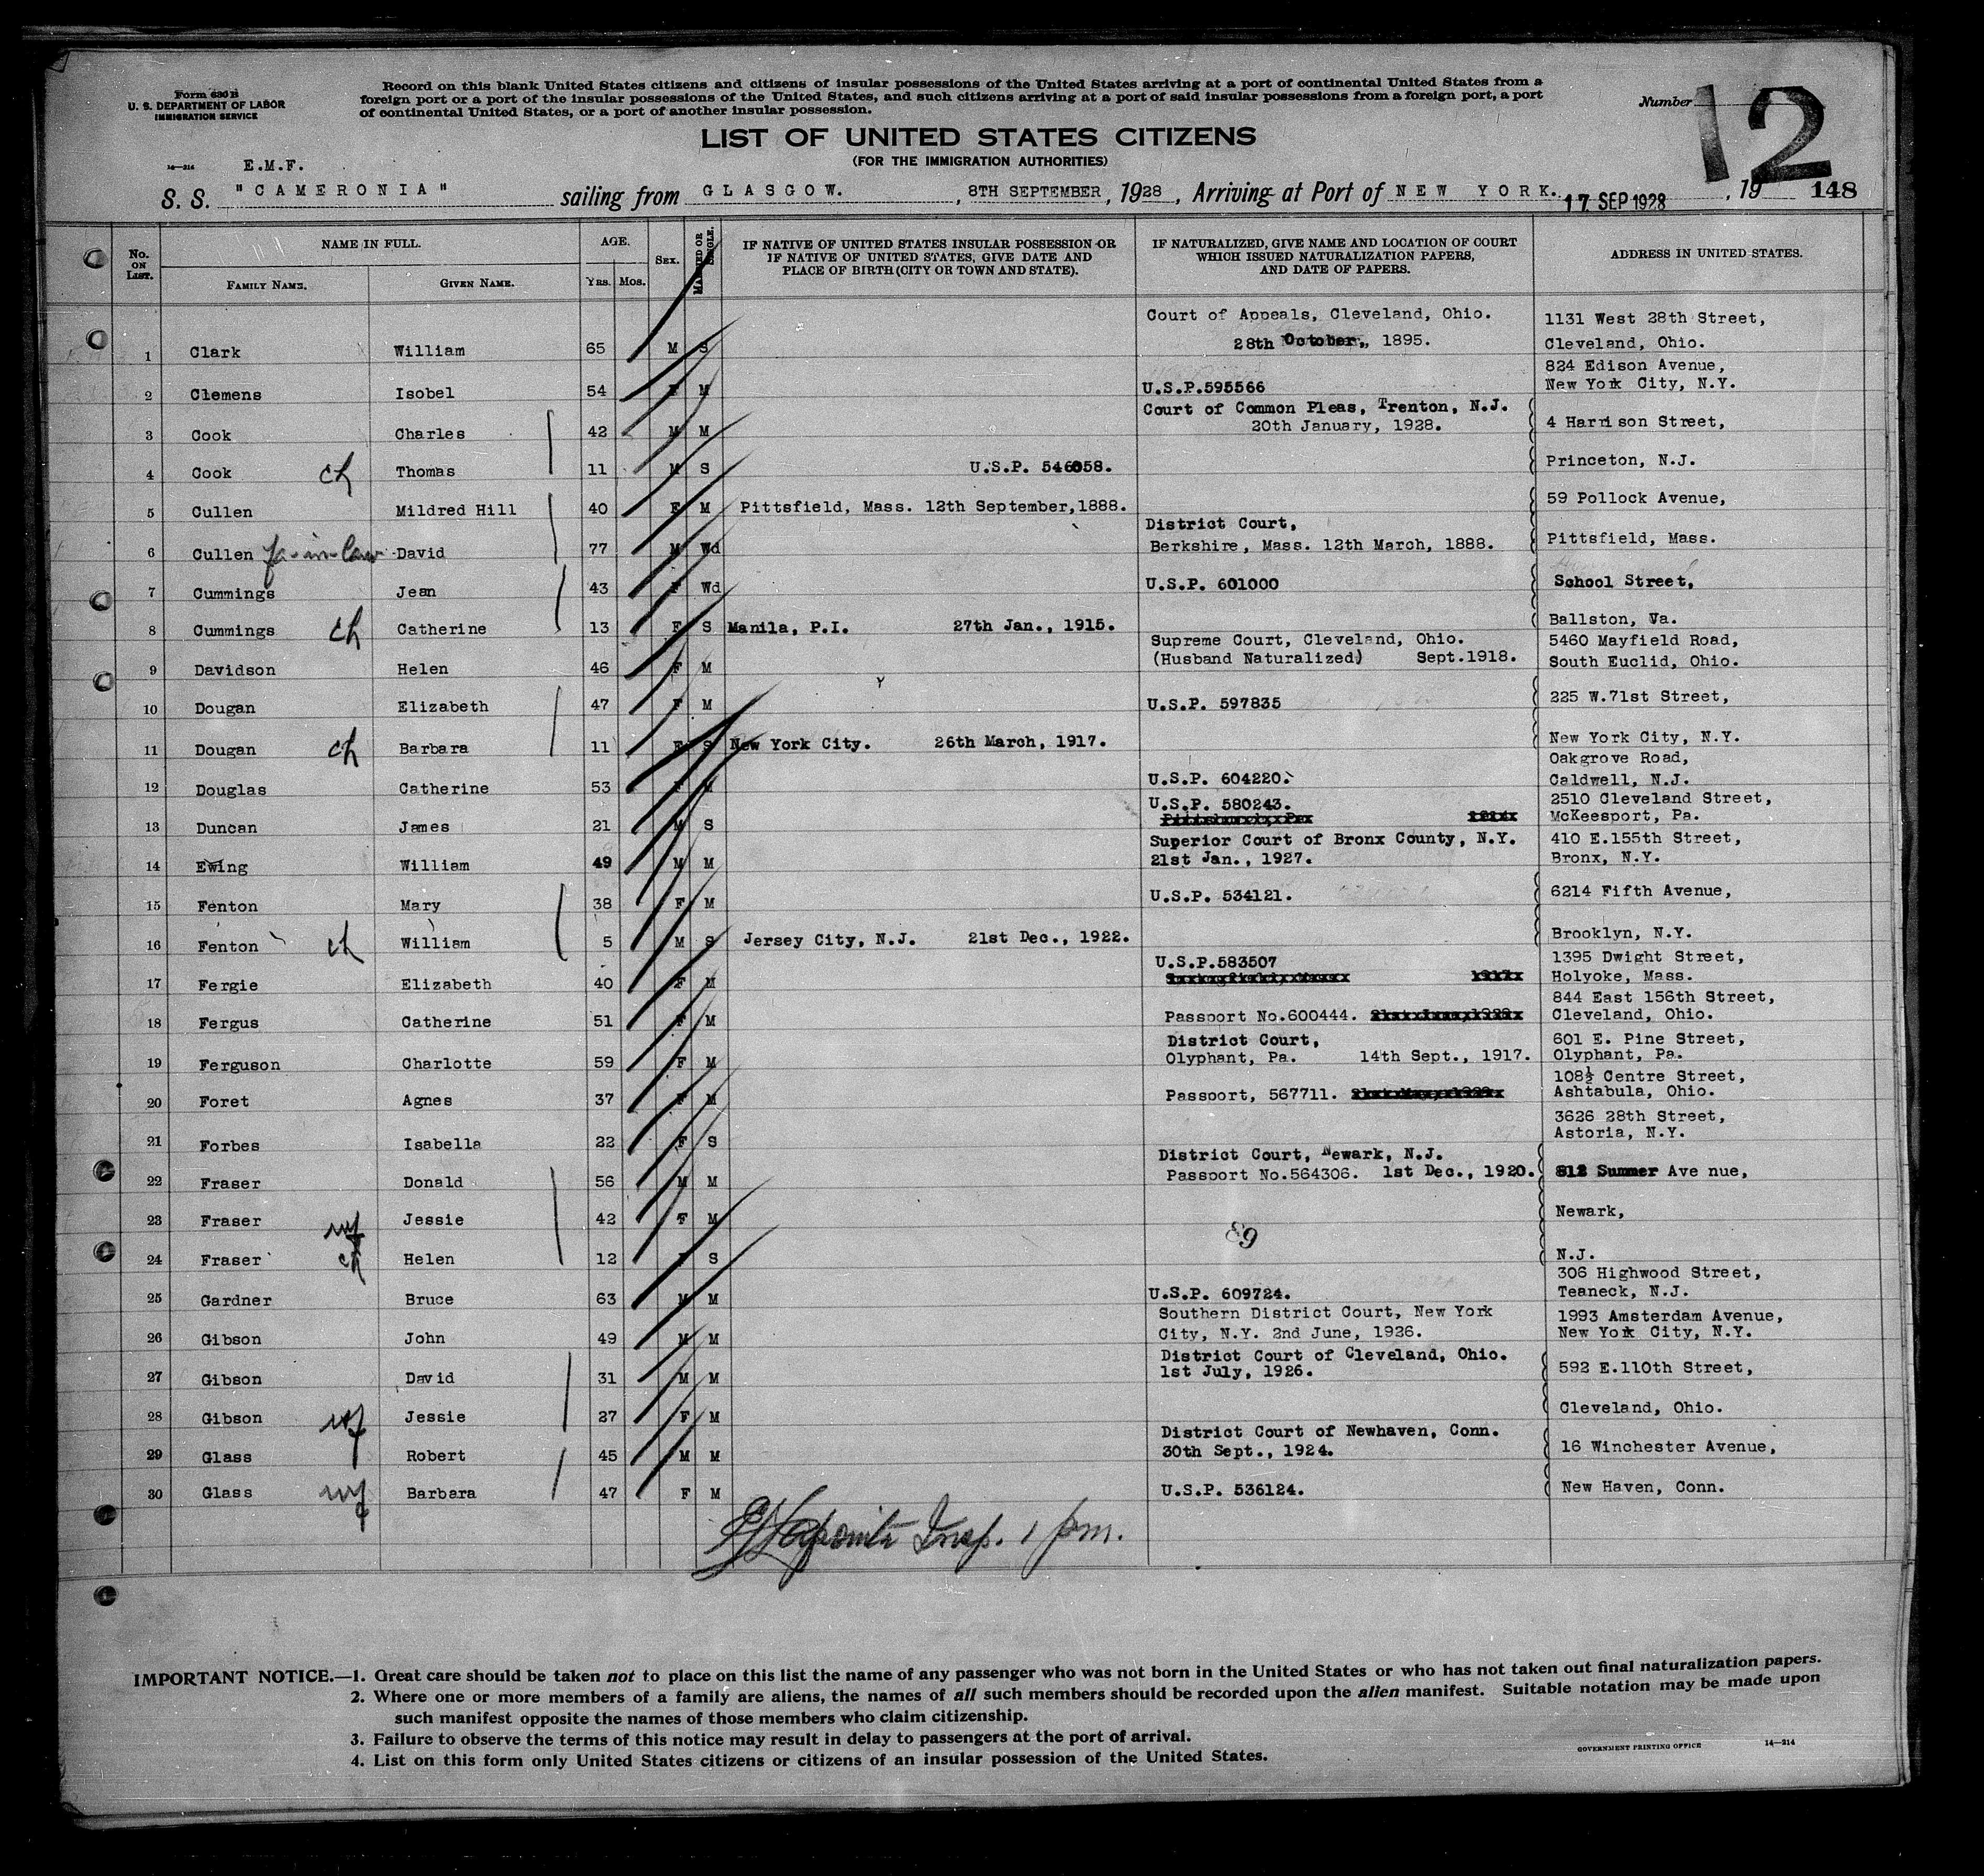 Form 630 B
U. S. DEPARTMENT OF LABOR
IMMIGRATION SERVICE
Record on this blank United States citizens and citizens of insular possessions of the United States arriving at a port of continental United States from a
foreign port or a port of the insular possessions of the United States, and such citizens arriving at a port of said insular possessions from a foreign port, a port
of continental United States, or a port of another insular possession.
Number 12
LIST OF UNITED STATES CITIZENS
(FOR THE IMMIGRATION AUTHORITIES)
14—214
E.M.F.
S. S. "CAMERONIA" sailing from GLASGOW. , 8TH SEPTEMBER , 1928 , Arriving at Port of NEW YORK. 17 SEP 1928 , 19 148
No. ON LIST. NAME IN FULL. AGE. SEX. MARRIED OR SINGLE. IF NATIVE OF UNITED STATES INSULAR POSSESSION OR IF NATIVE OF UNITED STATES, GIVE DATE AND PLACE OF BIRTH (CITY OR TOWN AND STATE). IF NATURALIZED, GIVE NAME AND LOCATION OF COURT WHICH ISSUED NATURALIZATION PAPERS, AND DATE OF PAPERS. ADDRESS IN UNITED STATES.
FAMILY NAME. GIVEN NAME. YRS. MOS.
Court of Appeals, Cleveland, Ohio. 1131 West 28th Street,
1 Clark William 65 M S 28th October, 1895. Cleveland, Ohio.
824 Edison Avenue,
2 Clemens Isobel 54 F M U.S.P.595566 New York City, N.Y.
Court of Common Pleas, Trenton, N.J.
3 Cook Charles 42 M M 20th January, 1928. 4 Harrison Street,
4 Cook ch Thomas 11 M S U.S.P. 546058. Princeton, N.J.
5 Cullen Mildred Hill 40 F M Pittsfield, Mass. 12th September,1888. 59 Pollock Avenue,
District Court,
6 Cullen fa-in-law David 77 M Wd Berkshire, Mass. 12th March, 1888. Pittsfield, Mass.
7 Cummings Jean 43 F Wd U.S.P. 601000 School Street,
8 Cummings ch Catherine 13 F S Manila, P.I. 27th Jan., 1915. Ballston, Va.
Supreme Court, Cleveland, Ohio. 5460 Mayfield Road,
9 Davidson Helen 46 F M (Husband Naturalized) Sept.1918. South Euclid, Ohio.
10 Dougan Elizabeth 47 F M U.S.P. 597835 225 W.71st Street,
11 Dougan ch Barbara 11 F S New York City. 26th March, 1917. New York City, N.Y.
Oakgrove Road,
12 Douglas Catherine 53 F M U.S.P. 604220. Caldwell, N.J.
U.S.P. 580243. 2510 Cleveland Street,
13 Duncan James 21 M S McKeesport, Pa.
Superior Court of Bronx County, N.Y. 410 E.155th Street,
14 Ewing William 49 M M 21st Jan., 1927. Bronx, N.Y.
15 Fenton Mary 38 F M U.S.P. 534121. 6214 Fifth Avenue,
16 Fenton ch William 5 M S Jersey City, N.J. 21st Dec., 1922. Brooklyn, N.Y.
U.S.P.583507 1395 Dwight Street,
17 Fergie Elizabeth 40 F M Holyoke, Mass.
844 East 156th Street,
18 Fergus Catherine 51 F M Passport No.600444. Cleveland, Ohio.
District Court, 601 E. Pine Street,
19 Ferguson Charlotte 59 F M Olyphant, Pa. 14th Sept., 1917. Olyphant, Pa.
108½ Centre Street,
20 Foret Agnes 37 F M Passport, 567711. Ashtabula, Ohio.
3626 28th Street,
21 Forbes Isabella 22 F S Astoria, N.Y.
District Court, Newark, N.J.
22 Fraser Donald 56 M M Passport No.564306. 1st Dec., 1920. 812 Summer Ave nue,
23 Fraser wf Jessie 42 F M Newark,
24 Fraser ch Helen 12 F S N.J.
306 Highwood Street,
25 Gardner Bruce 63 M M U.S.P. 609724. Teaneck, N.J.
Southern District Court, New York 1993 Amsterdam Avenue,
26 Gibson John 49 M M City, N.Y. 2nd June, 1926. New York City, N.Y.
District Court of Cleveland, Ohio.
27 Gibson David 31 M M 1st July, 1926. 592 E.110th Street,
28 Gibson wf Jessie 27 F M Cleveland, Ohio.
District Court of Newhaven, Conn.
29 Glass Robert 45 M M 30th Sept., 1924. 16 Winchester Avenue,
30 Glass wf Barbara 47 F M U.S.P. 536124. New Haven, Conn.
Insp. 1 pm.
IMPORTANT NOTICE.—1. Great care should be taken not to place on this list the name of any passenger who was not born in the United States or who has not taken out final naturalization papers.
2. Where one or more members of a family are aliens, the names of all such members should be recorded upon the alien manifest. Suitable notation may be made upon
such manifest opposite the names of those members who claim citizenship.
3. Failure to observe the terms of this notice may result in delay to passengers at the port of arrival.
4. List on this form only United States citizens or citizens of an insular possession of the United States.
GOVERNMENT PRINTING OFFICE 14—214